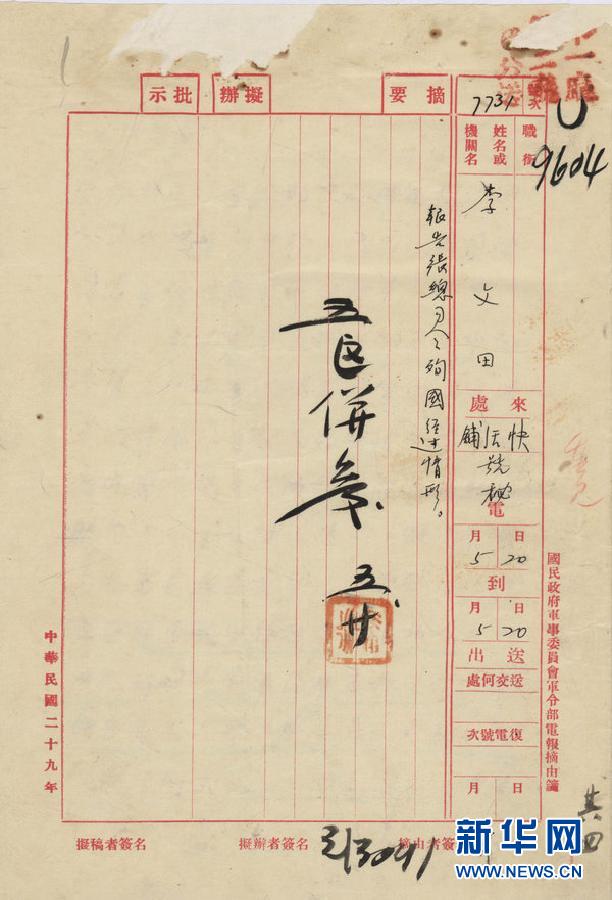 號次
7731
9604
職銜
姓名或
機關名
李文田
來處
快活鋪
號秘電
月 日
5 20
到
月 日
5 20
送出
送交何處
復電號次
月 日
國民政府軍事委員會軍令部電報摘由箋
其四
摘要
報告張總司令殉國經過情形。
擬辦
五區併象
五、廿
批示
中華民國二十九年
擬稿者簽名
擬辦者簽名
摘由者簽
新华网
WWW.NEWS.CN